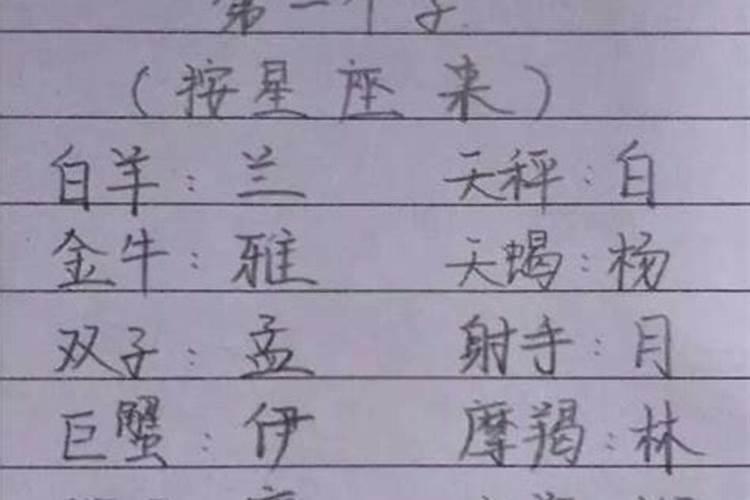 第一个字
（按星座来）
白羊：兰 天秤：白
金牛：雅 天蝎：杨
双子：孟 射手：月
巨蟹：伊 摩羯：林